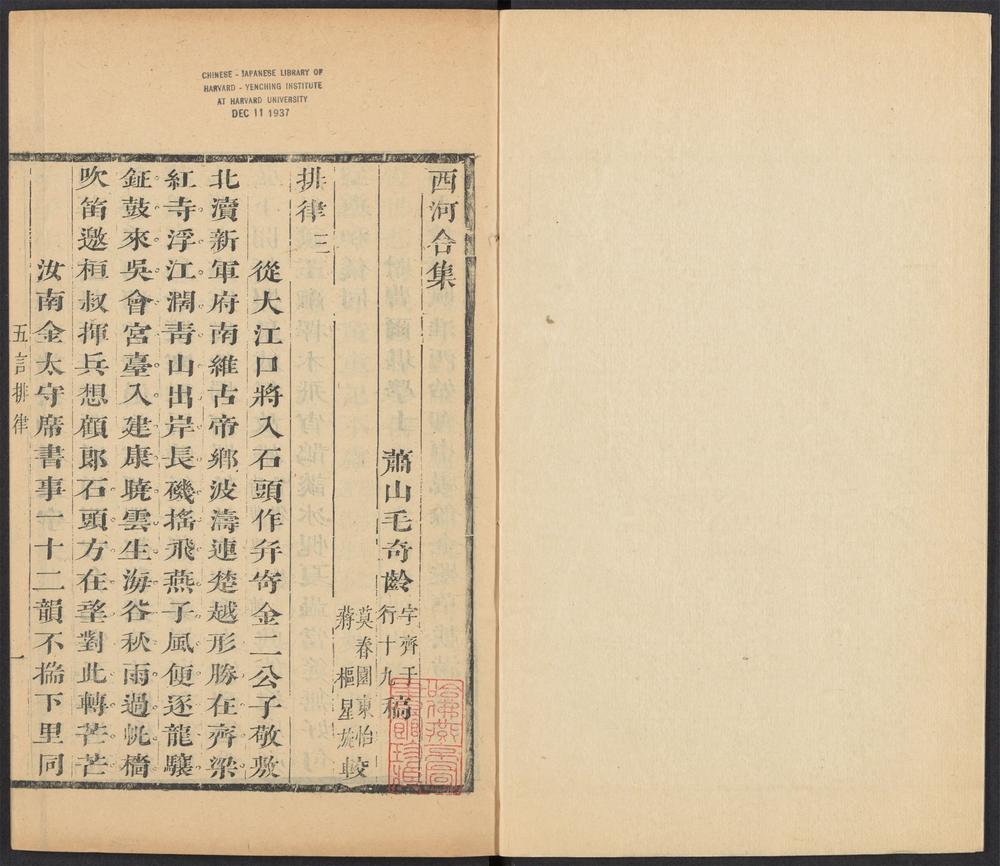 CHINESE - JAPANESE LIBRARY OF
HARVARD - YENCHING INSTITUTE
AT HARVARD UNIVERSITY
DEC 11 1937
西河合集
蕭山毛奇齡字齊于行十九稿
莫春園東怡
蔣樞星旋較
排律三
從大江口將入石頭作并寄金二公子敬敷
北瀆新軍府南維古帝鄉波濤連楚越形勝在齊梁
紅寺浮江濶青山出岸長磯搖飛燕子風便逐龍驤
鉦鼓來吳會宮臺入建康曉雲生海谷秋雨過帆檣
吹笛邀桓叔揮兵想顧郎石頭方在望對此轉芒芒
汝南金太守席書事一十二韻不揣下里同
五言排律
一